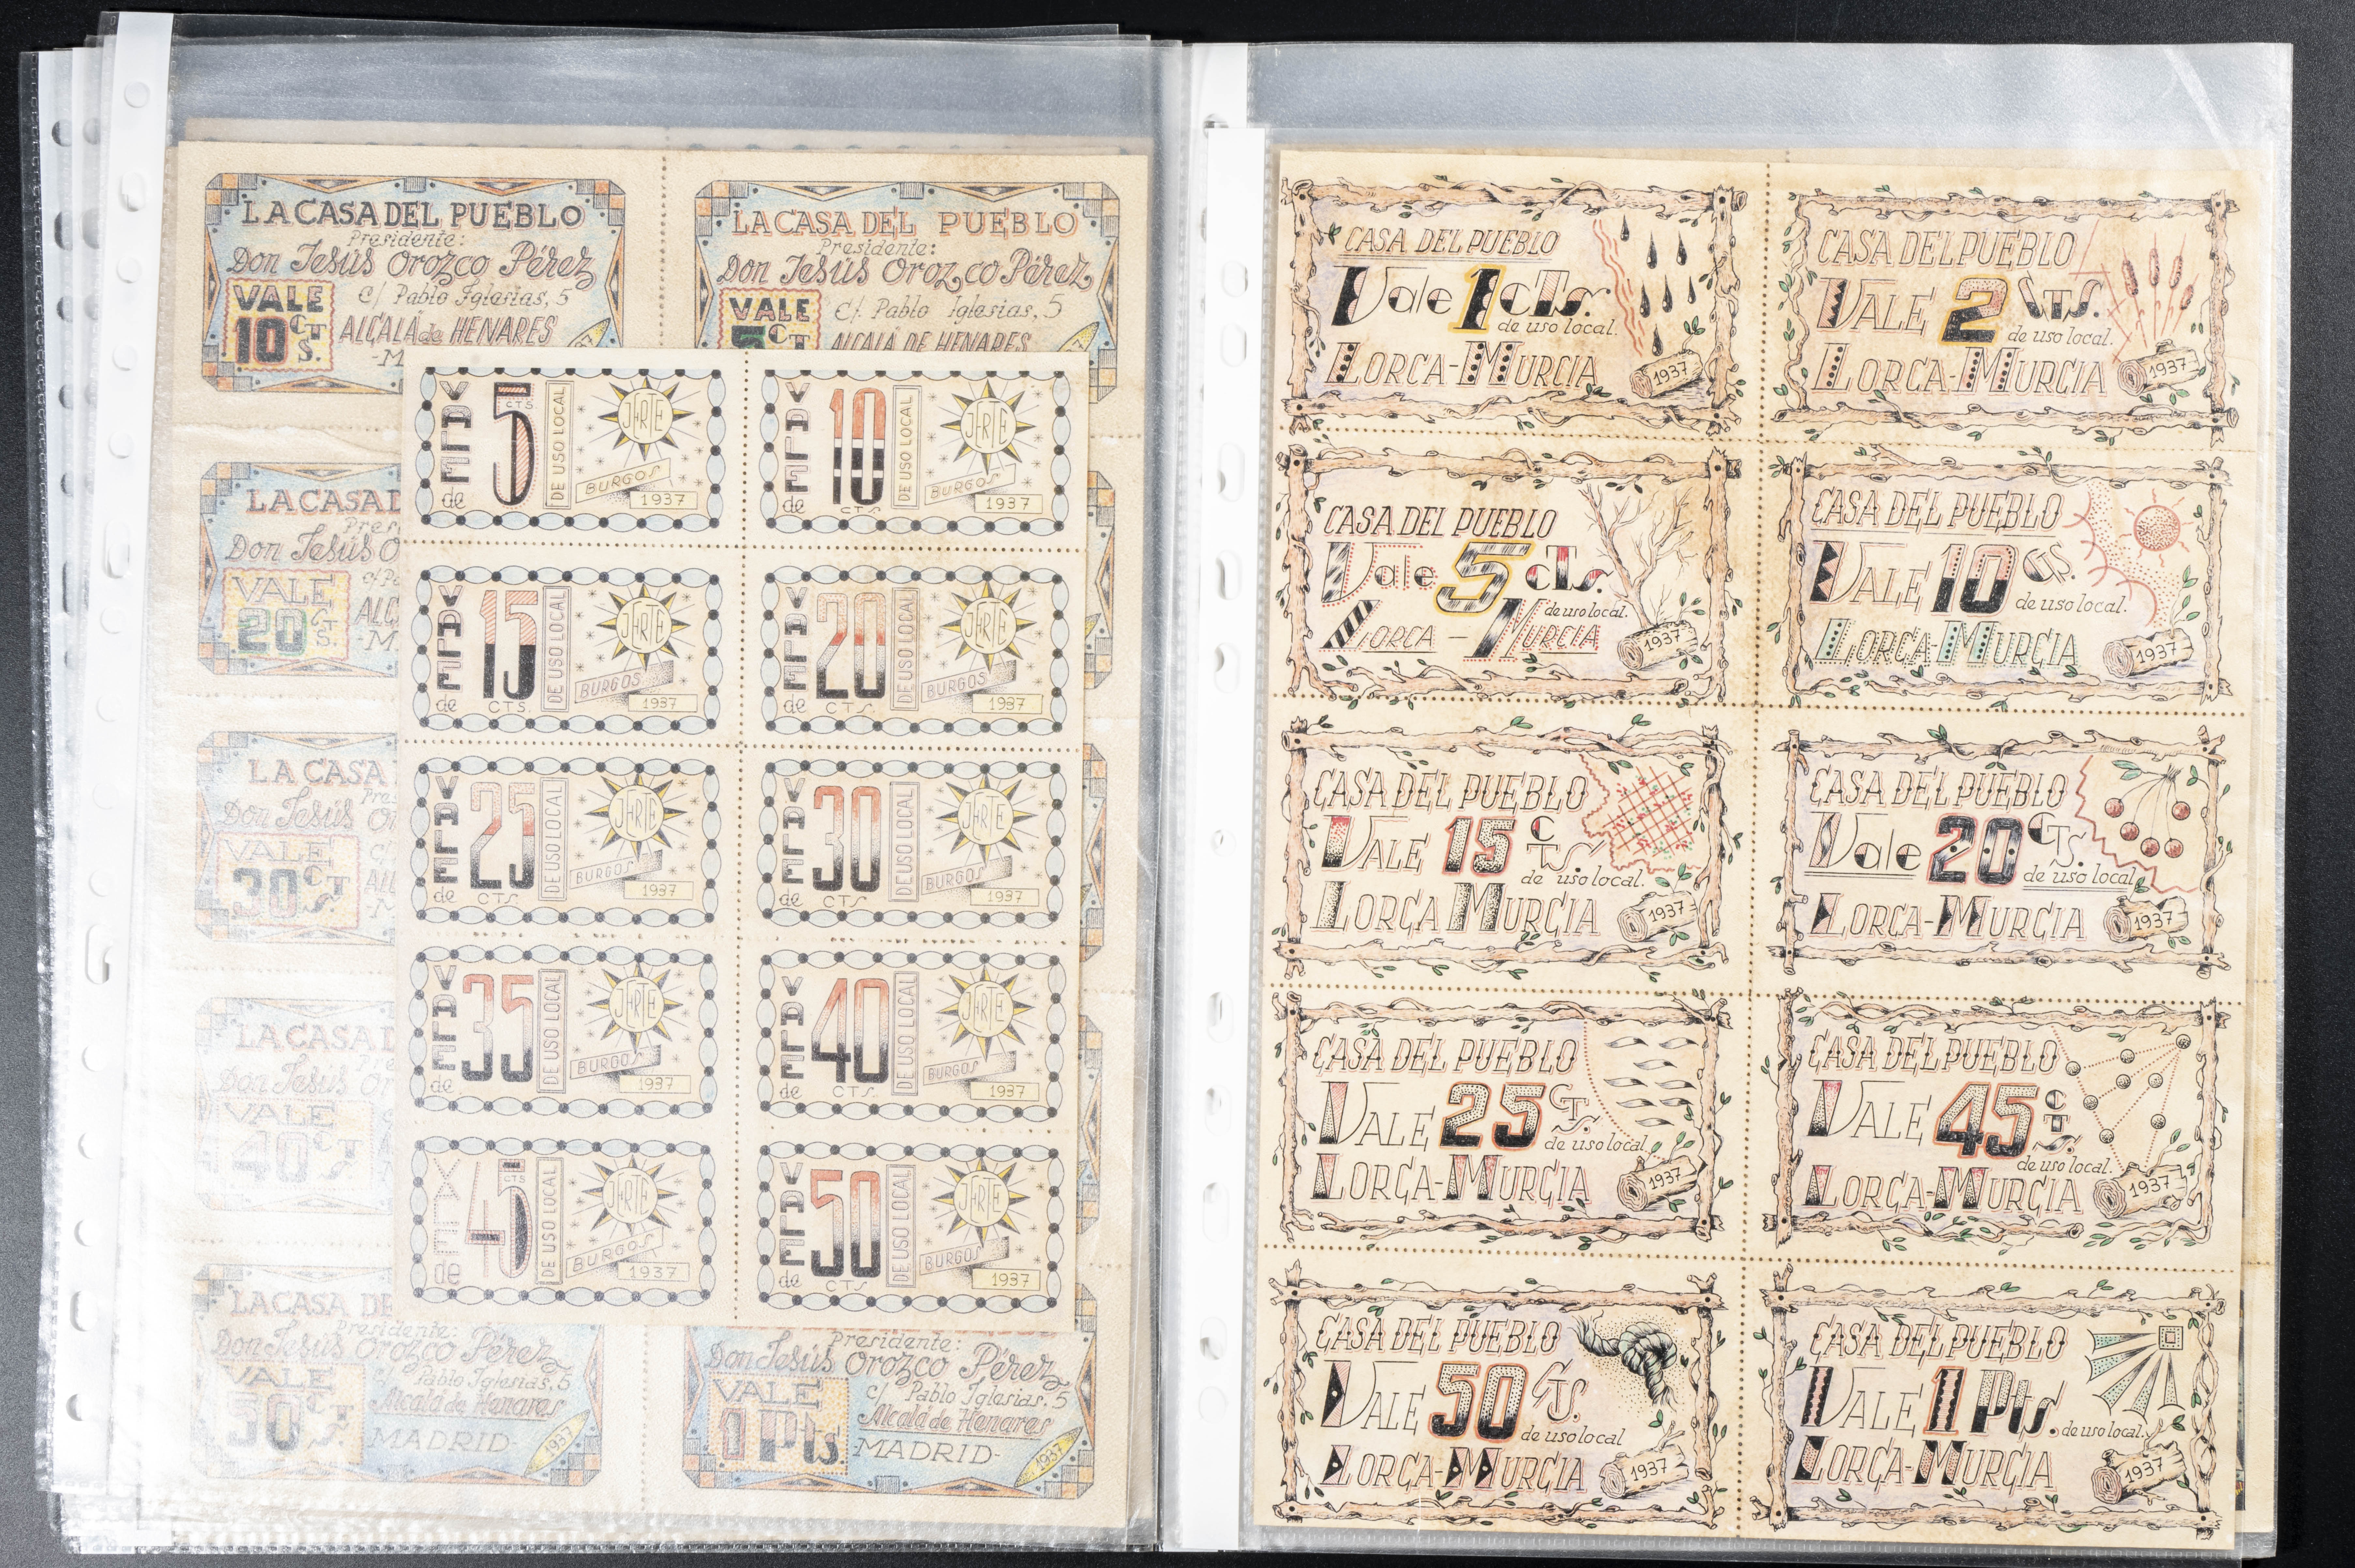 LA CASA DEL PUEBLO
Presidente:
Don Jesús Orozco Pérez
VALE
10 CTS.
C/ Pablo Iglesias, 5
ALCALÁ de HENARES
-M
LA CASA DEL PUEBLO
Presidente:
Don Jesús Orozco Pérez
VALE
5 CT
C/. Pablo Iglesias, 5
ALCALA DE HENARES
LA CASA D
Pres
Don Jesús O
VALE
20 CTS.
ALC
M
LA CASA
Pre
Don Jesús Or
VALE
30 CTS.
ALC
-M
LA CASA D
Pre
Don Jesús Or
VALE
40 CTS.
LA CASA DE
Presidente:
Don Jesús Orozco Pérez
VALE
50 CTS.
c/ Pablo Iglesias, 5
Alcalá de Henares
MADRID-
1937
Presidente:
Don Jesús Orozco Pérez
VALE
1 Pts.
c/ Pablo Iglesias, 5
Alcalá de Henares
MADRID-
1937
VALE de
5
CTS
DE USO LOCAL
JERTE
BURGOS
1937
VALE de
10
CTS
DE USO LOCAL
JERTE
BURGOS
1937
VALE de
15
CTS.
DE USO LOCAL
JERTE
BURGOS
1937
VALE de
20
CTS.
DE USO LOCAL
JERTE
BURGOS
1937
VALE de
25
CTS
DE USO LOCAL
JERTE
BURGOS
1937
VALE de
30
CTS
DE USO LOCAL
JERTE
BURGOS
1937
VALE de
35
CTS
DE USO LOCAL
JERTE
BURGOS
1937
VALE de
40
CTS.
DE USO LOCAL
JERTE
BURGOS
1937
VALE de
45
CTS
DE USO LOCAL
JERTE
BURGOS
1937
VALE de
50
CTS
DE USO LOCAL
JERTE
BURGOS
1937
CASA DEL PUEBLO
Vale 1 cTs.
de uso local.
LORCA-MURCIA
1937
CASA DEL PUEBLO
VALE 2 CTS.
de uso local.
LORCA-MURCIA
1937
CASA DEL PUEBLO
Vale 5 cTs.
de uso local.
LORCA - MURCIA
1937
CASA DEL PUEBLO
VALE 10 CTS.
de uso local.
LORCA-MURCIA
1937
CASA DEL PUEBLO
VALE 15 CTS.
de uso local.
LORCA MURCIA
1937
CASA DEL PUEBLO
Vale 20 CTS.
de uso local
LORCA-MURCIA
1937
CASA DEL PUEBLO
VALE 25 CTS.
de uso local
LORCA-MURCIA
1937
CASA DEL PUEBLO
VALE 45 CTS.
de uso local.
LORCA-MURCIA
1937
CASA DEL PUEBLO
VALE 50 CTS.
de uso local
LORCA-MURCIA
1937
CASA DEL PUEBLO
VALE 1 Pts.
de uso local.
LORCA-MURCIA
1937